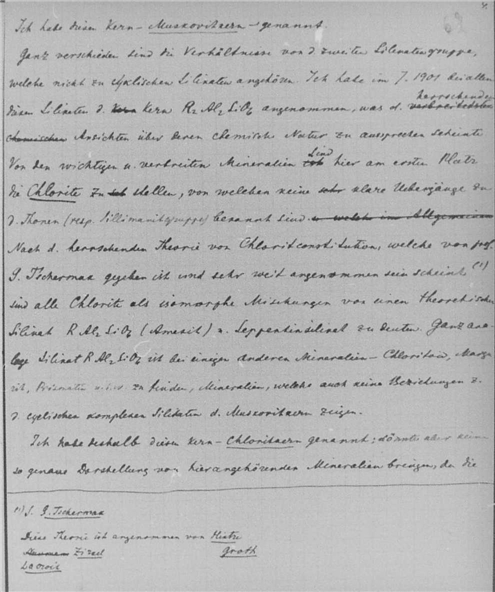 Ich habe diesen Kern – Muskovitkern – genannt.
Ganz verschieden sind die Verhältnisse von d. zweiten Silikatengruppe,
welche nicht zu cyklischen Silikaten angehören. Ich habe im J. 1901 bei allen
herrschenden
diesen Silikaten d. Kern R2 Al2 SiO6 angenommen, was d. verbreitetsten
chemischen Ansichten über deren chemische Natur zu aussprechen scheinte
sind
Von den wichtigen u. verbreiten Mineralien hier am ersten Platz
die Chlorite zu stellen, von welchen keine sehr klare Uebergänge zu
d. Thonen (resp. Sillimanitgruppe) bekannt sind u. welche im Allgemeinen
Nach d. herrschenden Theorie von Chloritconstitution, welche von prof.
G. Tschermak gegeben ist und sehr weit angenommen sein scheint (1)
sind alle Chlorite als isomorphe Mischungen von einen theoretischen
Silikat R Al2 SiO6 (Amesit) u. Serpentinsilikat zu deuten. Ganz ana-
loge Silikat R Al2 SiO6 ist bei einigen anderen Mineralien – Chloritoid,
ist, zu finden, Mineralien, welche auch keine Beziehungen z.
d. cyclischen komplexen Silikaten d. Muskovitkern zeigen.
Ich habe deshalb diesen Kern – Chloritkern genannt: könnte aber keine
so genaue Darstellung von hierangehörenden Mineralien bringen, da die
(1) S. G. Tschermak
Diese Theorie ist angenommen von Hintze
Naumann Zirkel Groth
Lacroix